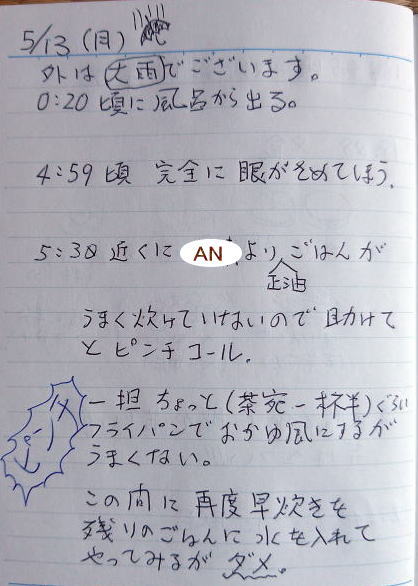 5/13 (月)
外は大雨でございます。
0:20 頃に風呂から出る。
4:59 頃 完全に 眼がさめてしまう。
5:30 近くに AN より ごはんが
うまく炊けていないので助けて
と ピンチ コール。
一担 ちょっと (茶宛一杯半) ぐらい
フライパンで おかゆ風にするが
うまくない。
ダメ
この間に 再度 早炊きを
残りのごはんに 水を入れて
やってみるが ダメ。